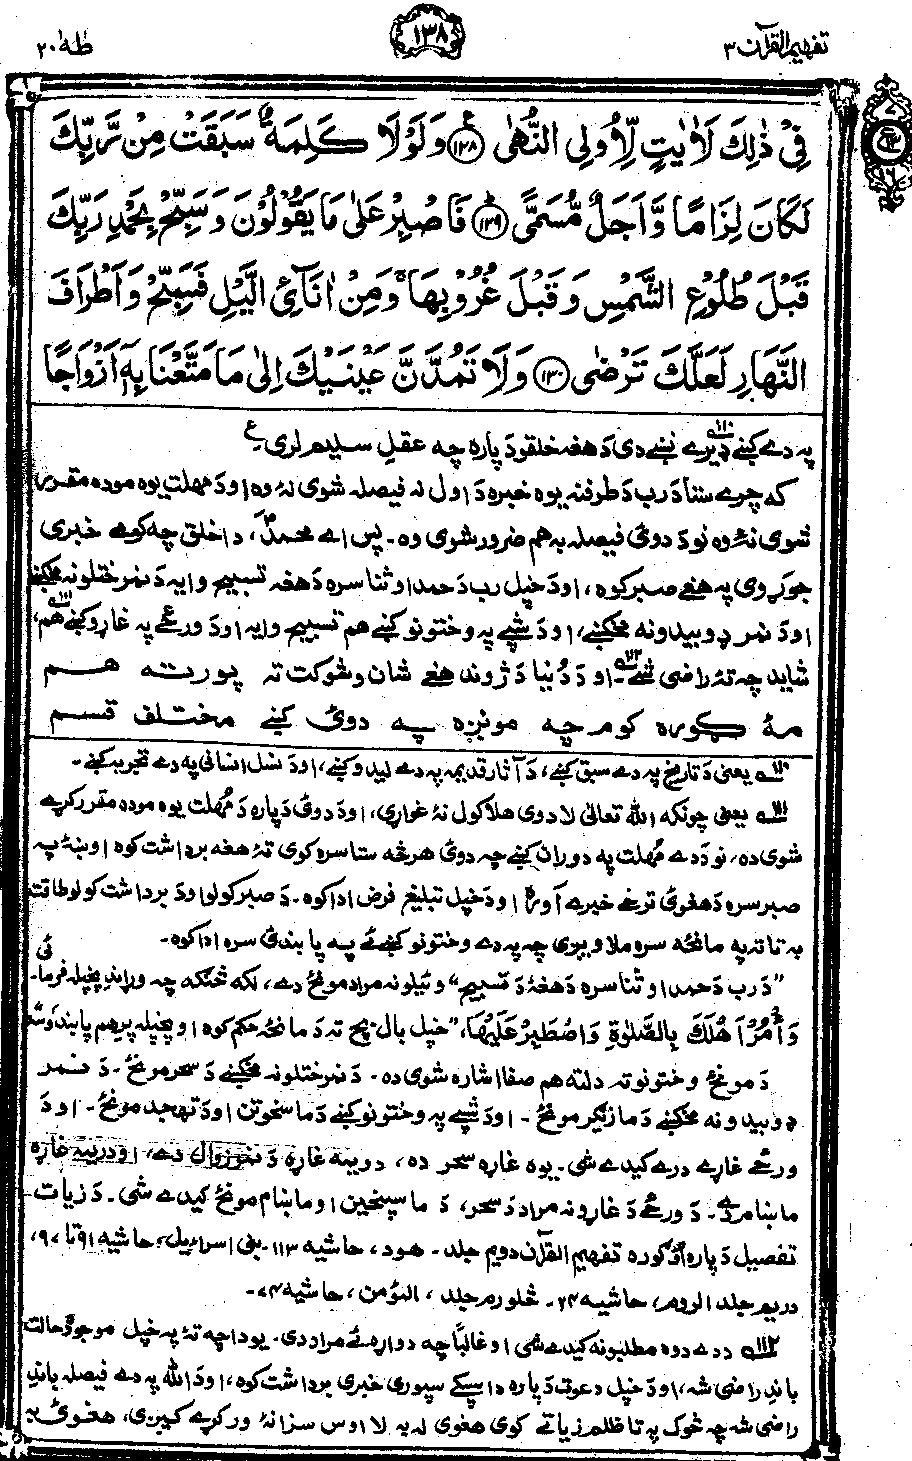 تفهیم القرآن ۳
۱۳۸
طٰهٰ ۲۰
فِیْ ذٰلِكَ لَاٰیٰتٍ لِّاُولِی النُّهٰی ﴿۱۲۸﴾ وَلَوْلَا كَلِمَةٌ سَبَقَتْ مِنْ رَّبِّكَ
لَكَانَ لِزَامًا وَّاَجَلٌ مُّسَمًّی ﴿۱۲۹﴾ فَاصْبِرْ عَلٰی مَا یَقُوْلُوْنَ وَسَبِّحْ بِحَمْدِ رَبِّكَ
قَبْلَ طُلُوْعِ الشَّمْسِ وَقَبْلَ غُرُوْبِهَا ۚ وَمِنْ اٰنَآئِ الَّیْلِ فَسَبِّحْ وَاَطْرَافَ
النَّهَارِ لَعَلَّكَ تَرْضٰی ﴿۱۳۰﴾ وَلَا تَمُدَّنَّ عَیْنَیْكَ اِلٰی مَا مَتَّعْنَا بِهٖٓ اَزْوَاجًا
په دے کښے ډیرے نښے دی د هغه خلقو د پاره چه عقلِ سلیم لری ع
که چرے ستا د رب د طرفنه یوه خبره د اول نه فیصله شوی نهٔ وه او د مهلت یوه موده مقرره
شوی نهٔ وه نو د دوئی فیصله به هم ضرور شوی وه۔ پس اے محمدؐ، دا خلق چه کومے خبری
جوړوی په هغے صبر کوه، او د خپل رب د حمد او ثنا سره د هغه تسبیح وایه د نمر ختلو نه مخکښے
او د نمر ډوبیدو نه مخکښے، او د شپے په وختونو کښے هم تسبیح وایه او د ورځے په غاړو کښے هم،
شاید چه تهٔ راضی شے۔ او د دُنیا د ژوند هغے شان و شوکت ته پورته هم
مهٔ ګوره کوم چه مونږه په دوئی کښے مختلف قسم
۱۱۰ یعنی د تاریخ په دے سبق کښے، د آثارِ قدیمه په دے لیدو کښے، او د نسل انسانی په دے تجربه کښے۔
۱۱۱ یعنی چونکه الله تعالیٰ لا دوی هلاکول نهٔ غواړی، او د دوئی د پاره د مُهلت یوه موده مقرر کړے
شوی ده، نو د دے مُهلت په دوران کښے چه دوئی هر څه ستا سره کوی تهٔ هغه برداشت کوه او ښهٔ په
صبر سره د هغوئی ترخے خبرے آوره او د خپل تبلیغ فرض ادا کوه۔ د صبر کولو او د برداشت کولو طاقت
به تا ته په مانځه سره ملاویږی چه په دے وختونو کښے ئے په پابندئ سره ادا کوه۔
”د رب د حمد او ثنا سره د هغهٔ د تسبیح“ وئیلو نه مراد مونځ دے، لکه څنګه چه وړاندے پخپله فرمائی
وَأْمُرْ اَهْلَكَ بِالصَّلٰوةِ وَاصْطَبِرْ عَلَیْهَا، ”خپل بال بچ ته د مانځه حکم کوه او پخپله پرے هم پابند اوسه“
د مونځ وختونو ته دلته هم صفا اشاره شوی ده۔ د نمر ختلو نه مخکښے د سحر مونځ۔ د نمر
ډوبیدو نه مخکښے د مازیګر مونځ۔ او د شپے په وختونو کښے د ماسخوتن او د تهجد مونځ۔ او د
ورځے غاړے درے کیدے شی۔ یوه غاړه سحر ده، دویمه غاړه د نمر زوال دے، او دریمه غاړه
ماښام دے۔ د ورځے د غاړو نه مراد د سحر، د ماسپښین او ماښام مونځ کیدے شی۔ د زیات
تفصیل د پاره اوګوره تفهیم القرآن دویم جلد۔ هود، حاشیه ۱۱۳۔ بنی اسرائیل، حاشیه ۹۱ تا ۹۷،
دریم جلد الروم، حاشیه ۲۴۔ څلورم جلد، المؤمن، حاشیه ۷۴۔
۱۱۲ د دے دوه مطلبونه کیدے شی او غالباً چه دواړه ئے مراد دی۔ یو دا چه تهٔ په خپل موجوده حالت
باندے راضی شه، او د خپل دعوت د پاره داسے سپورے خبرے برداشت کوه، او د الله په دے فیصله باندے
راضی شه چه څوک په تا ظلم زیاتے کوی هغوی له به لا اوس سزا نهٔ ورکړے کیږی، هغوئی به